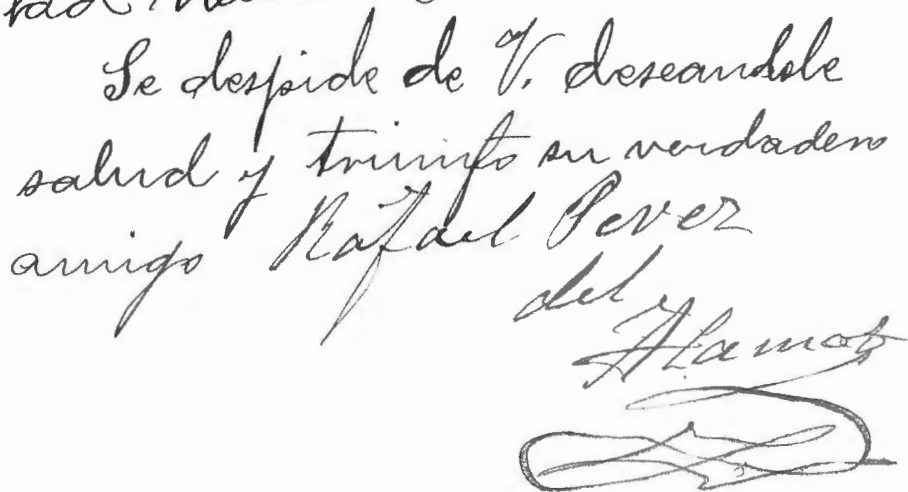 Se despide de V. deseandole
salud y triunfo su verdadero
amigo Rafael Perez
del
Alamo